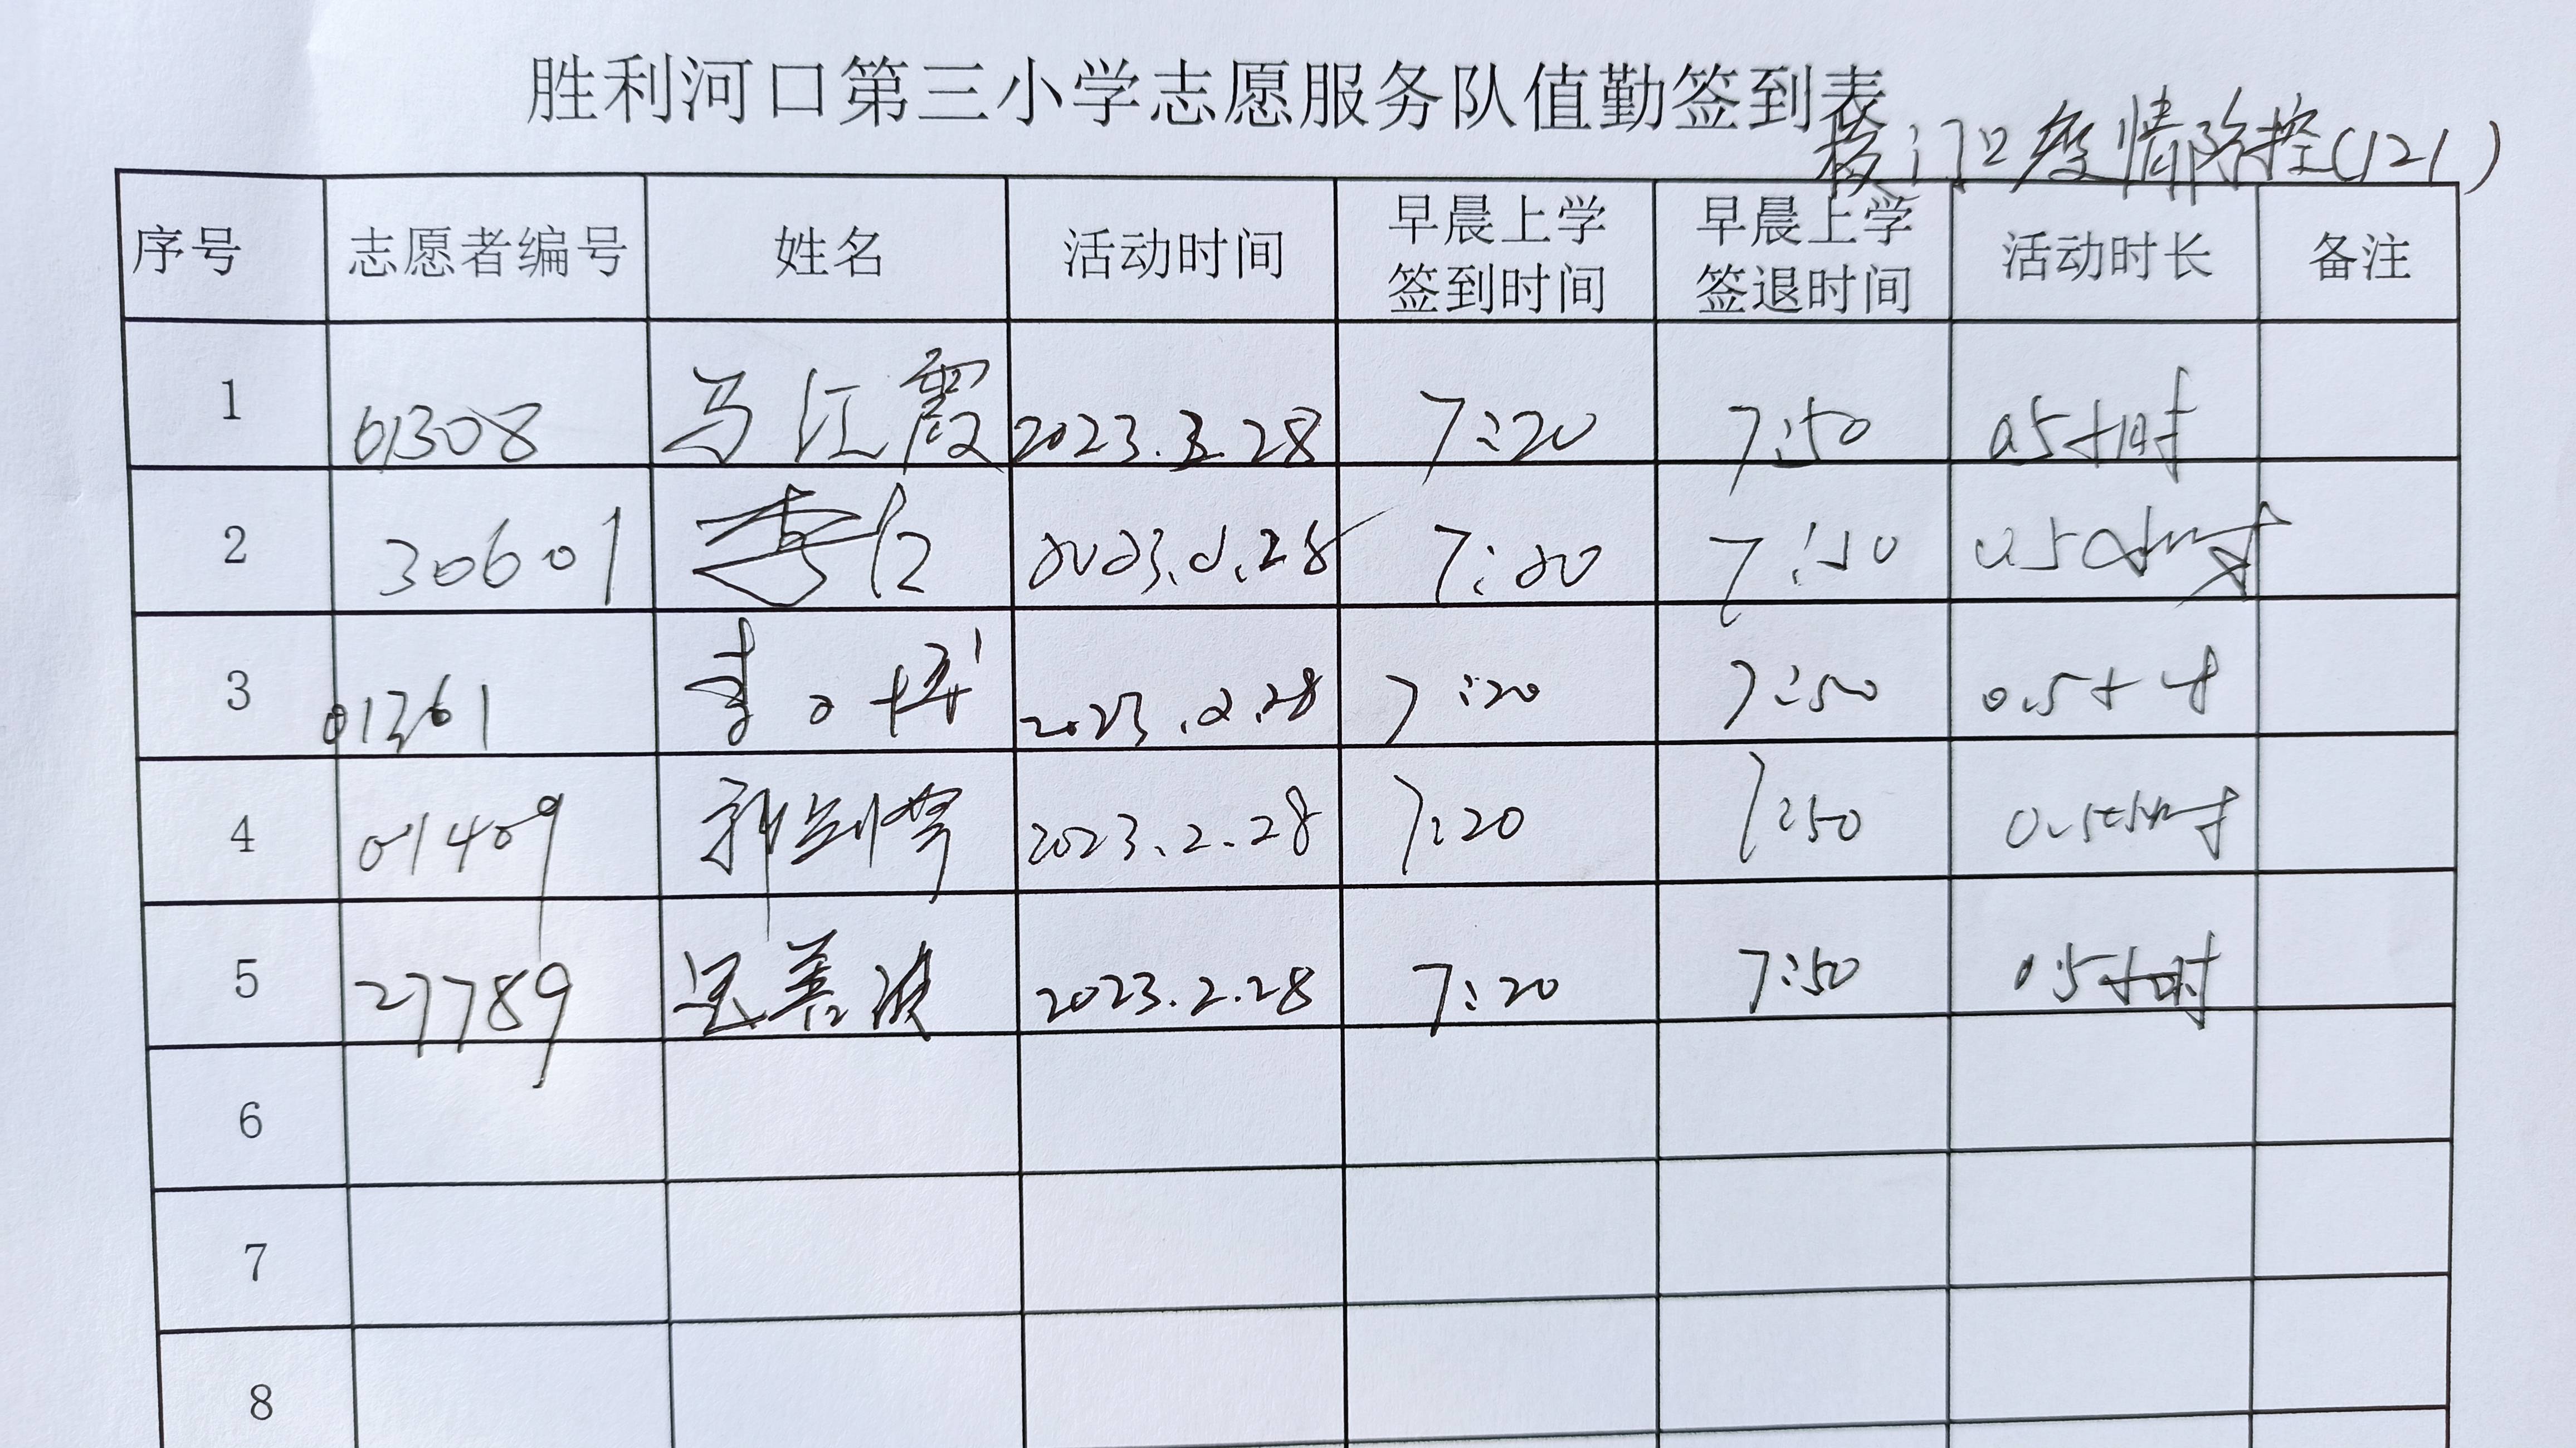 胜利河口第三小学志愿服务队值勤签到表
校门口疫情防控(121)
序号 志愿者编号 姓名 活动时间 早晨上学签到时间 早晨上学签退时间 活动时长 备注
1 01308 马江霞 2023.2.28 7:20 7:50 0.5小时
2 30601 李红 2023.2.28 7:20 7:50 0.5小时
3 01361 2023.2.28 7:20 7:50 0.5小时
4 01409 2023.2.28 7:20 7:50 0.5小时
5 27789 2023.2.28 7:20 7:50 0.5小时
6
7
8